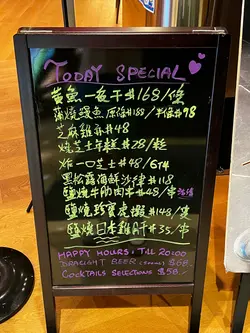 TODAY SPECIAL
黃魚一夜干$168/條
蒲燒鰻魚 原條$188/半條$98
芝麻雞亦$48
燒芝士年糕$28/串
炸一口芝士$48/6件
黑松露海鮮沙律$118
鹽燒牛肋肉串$48/串
鹽燒珍寶虎蝦$148/隻
鹽燒日本雞$35/串
HAPPY HOURS: TILL 20:00
DRAUGHT BEER $68
COCKTAILS SELECTIONS $58